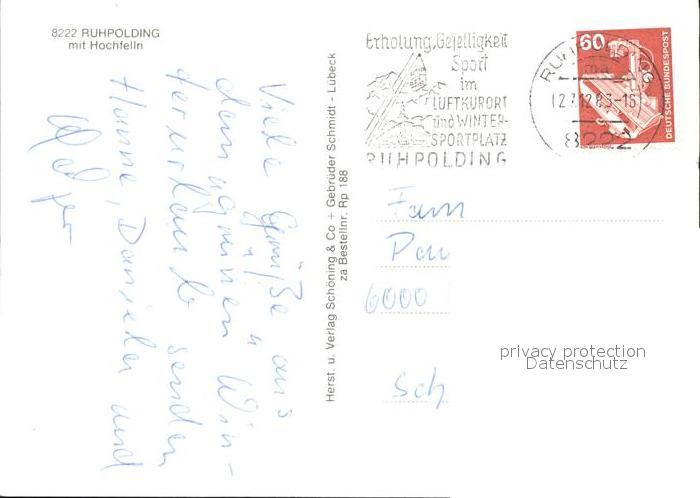 8222 RUHPOLDING
mit Hochfelln
Viele Grüße aus
dem "grünen" Win-
terurlaub senden
Hanne, Daniela und
Herst. u. Verlag Schöning & Co + Gebrüder Schmidt - Lübeck
za Bestellnr. Rp 188
Erholung, Geselligkeit
Sport
im
LUFTKURORT
und WINTER-
SPORTPLATZ
RUHPOLDING
60
DEUTSCHE BUNDESPOST
27.12.83-16
8222
Fam
Pau
6000
Sch
privacy protection
Datenschutz